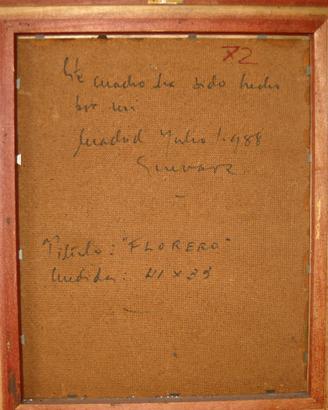 72
Este cuadro ha sido hecho
por mi
Madrid Julio 1.988
Guevara
Titulo: "FLORERO"
Medidas: 41 x 33